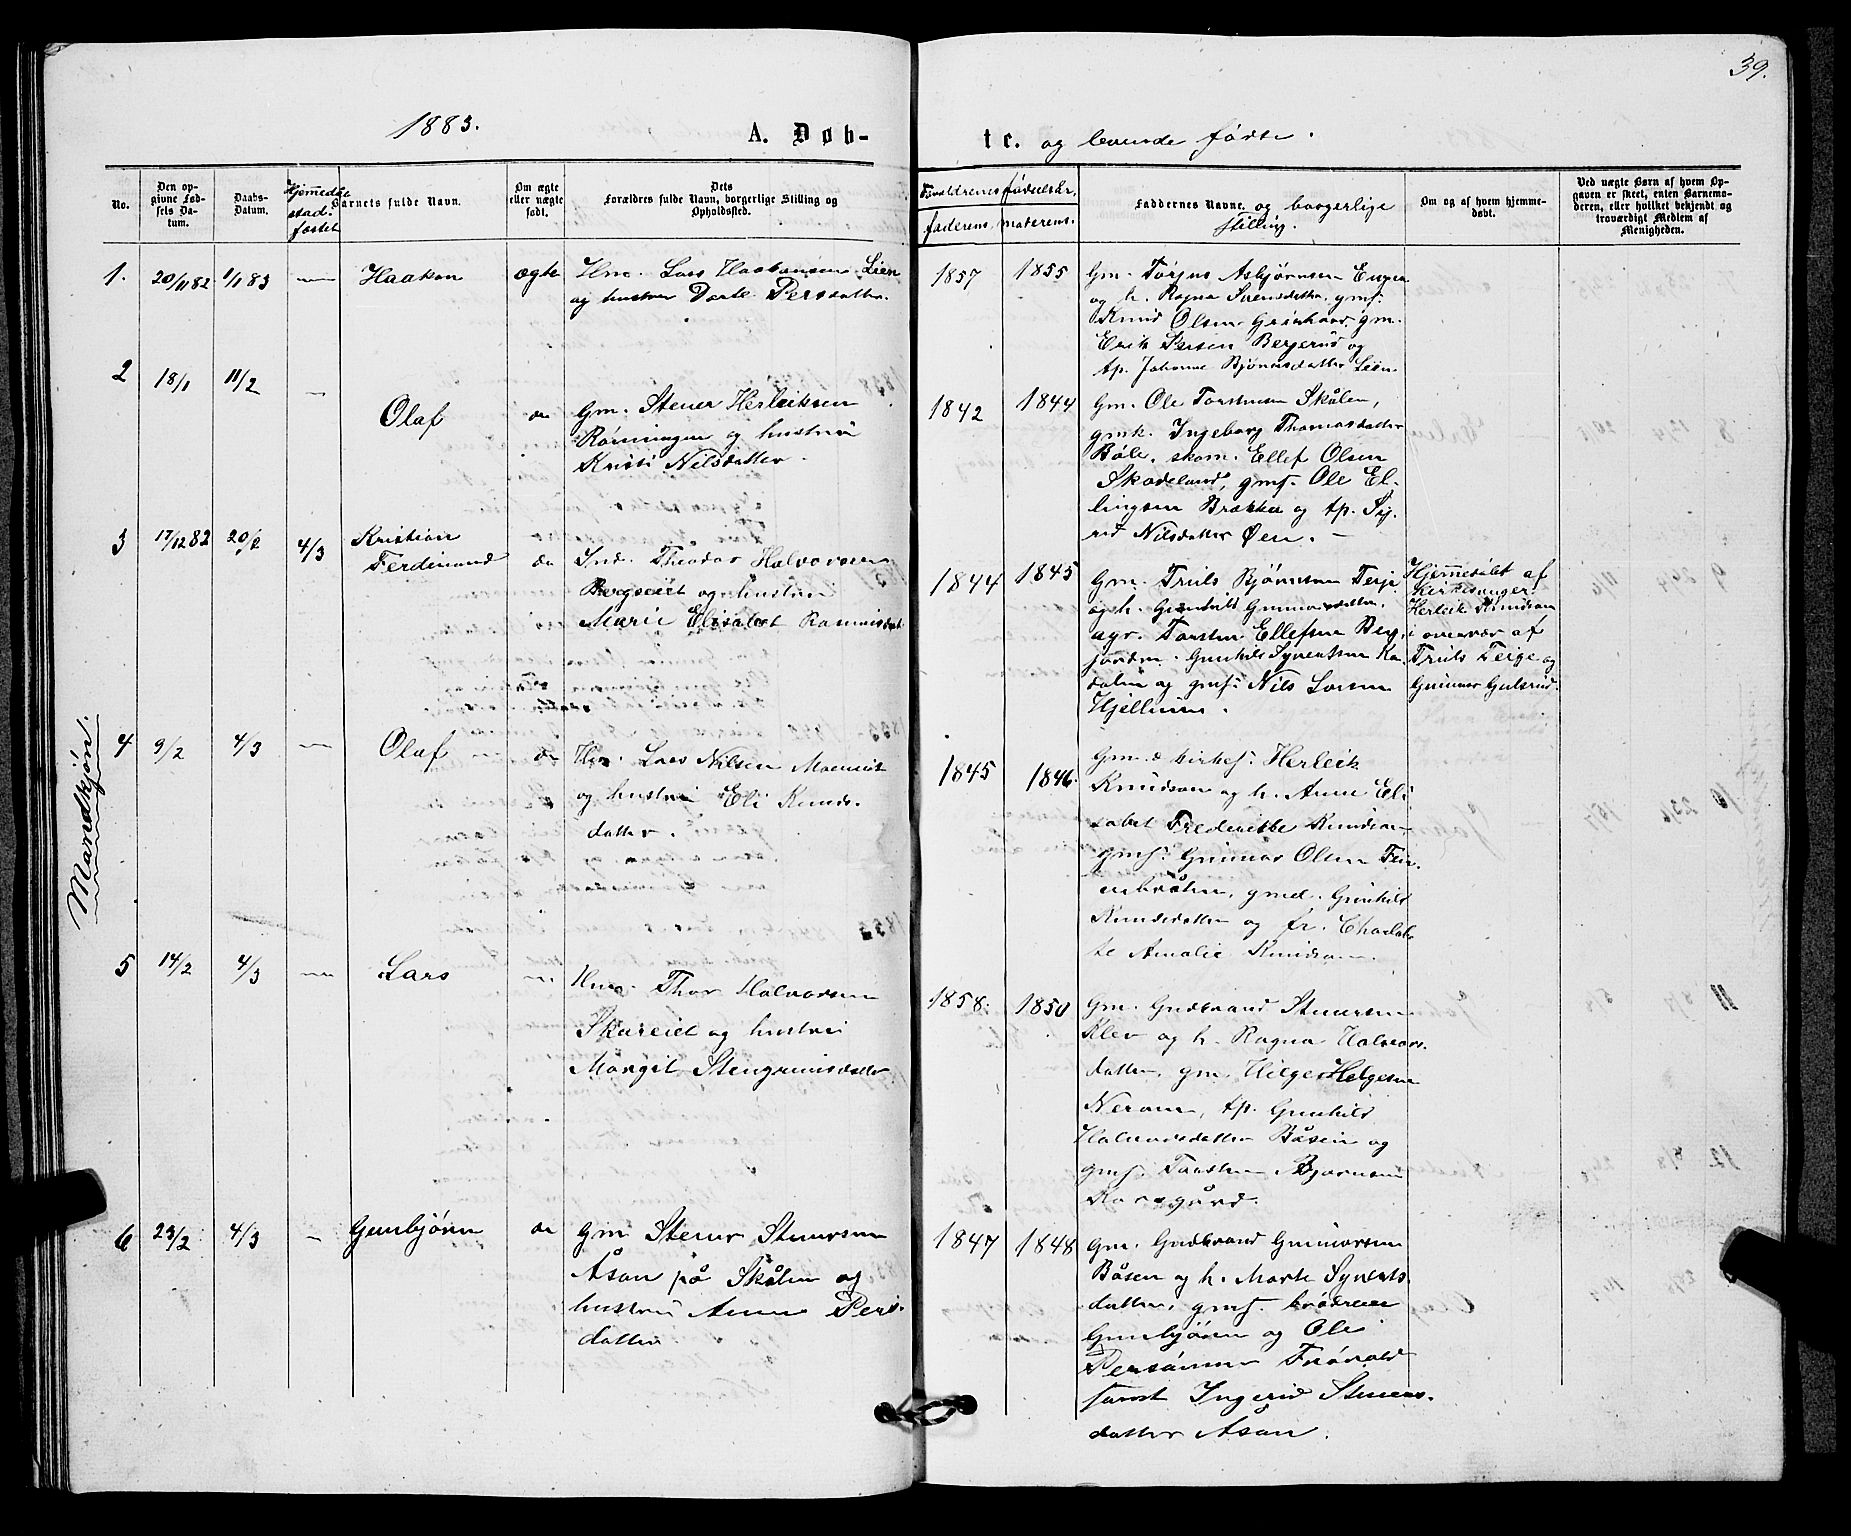 39.
1883.
A. Døb-
te. og levende fødte.
No.
Den op-
givne Fød-
sels Da-
tum.
Daabs-
Datum.
Hjemmedøbt
stad-
fæstet
Barnets fulde Navn.
Om ægte
eller uægte
født.
Dets
Forældres fulde Navn, borgerlige Stilling og
Opholdssted.
Forældrenes fødselsår.
faderens. moderens.
Faddernes Navne. og borgerlige
stilling.
Om og af hvem hjemme-
døbt.
Ved uægte Børn af hvem Op-
gaven er skeet, enten Barnemo-
deren, eller hvilket bekjendt og
troværdigt Medlem af
Menigheden.
Mandkjøn.
1. 20/11 82 1/1 83 — Haakon ægte Hm. Lars Haakonsen Lien
og hustru Dorte Persdatter.
1857 1855
Gm. Torjus Asbjørnsen
og h. Ragna Svensdatter. gmf.
Knud Olsen gm.
Erik Persen Bergerud og
tp. Johanne Bjørnsdatter Lien.
2 18/1 11/2 — Olaf do Gm. Stener Herleiksen
Rønningen og hustru
Kristi Nilsdatter.
1842 1844
Gm. Ole Torstensen Skålen,
gmk. Ingeborg Thomasdatter
Bøle. skom. Ellef Olsen
Skadeland, gmf. Ole El-
lingsen Brække og tp. Sig-
rid Nilsdatter Øen. —
3 17/12 82 20/2 4/3 Kristian
Ferdinand do Ind. Theodor Halvorsen
Bergseiet og hustru
Marie Elisabet
1844 1845
Gm. Truls Bjørnsen Teige
og h. Gunhild Gunnarsdatter.
agr. Torsten Ellefsen Berg-
jorden. Gunhild
og gmf. Nils Larsen
Hjellum.
Hjemmedøbt af
Kirkesanger
Herleik Knudson
i overvær af
Truls Teige og
Gunnar Gulsrud.
4 9/2 4/3 — Olaf do Hm. Lars Nilsen
og hustru Eli Knuds-
datter.
1845 1846.
Gm. & kirkes. Herleik
Knudson og h. Anne Eli
sabet Frederikke Knudson
gmf. Gunnar Olsen
gmd. Gunhild
Knudsdatter og fr. Charlot-
te Amalie Knudson.
5 14/2 4/3 — Lars — Hm. Thor Halvorsen
Skareiet og hustru
Margit Stengrimsdatter
1858. 1850
Gm. Gudbrand Stenersen
Klev og h. Ragna Halvors-
datter, gm. Helge Helgesen
Neraen, tp. Gunhild
Halvorsdatter Båsen og
gmf. Torsten Bjørnsen
Korsgård.
6 23/2 4/3 — Gunbjørn do gm Stener Stenersen
Åsan på Skålen og
hustru Anne Pers-
datter
1847 1848
Gm. Gudbrand Gunnarsen
Båsen og h. Marte Synerts-
datter, gmf. brødrene
Gunbjørn og Ole
Persønner
samt Ingerid Steners-
datter Åsan.